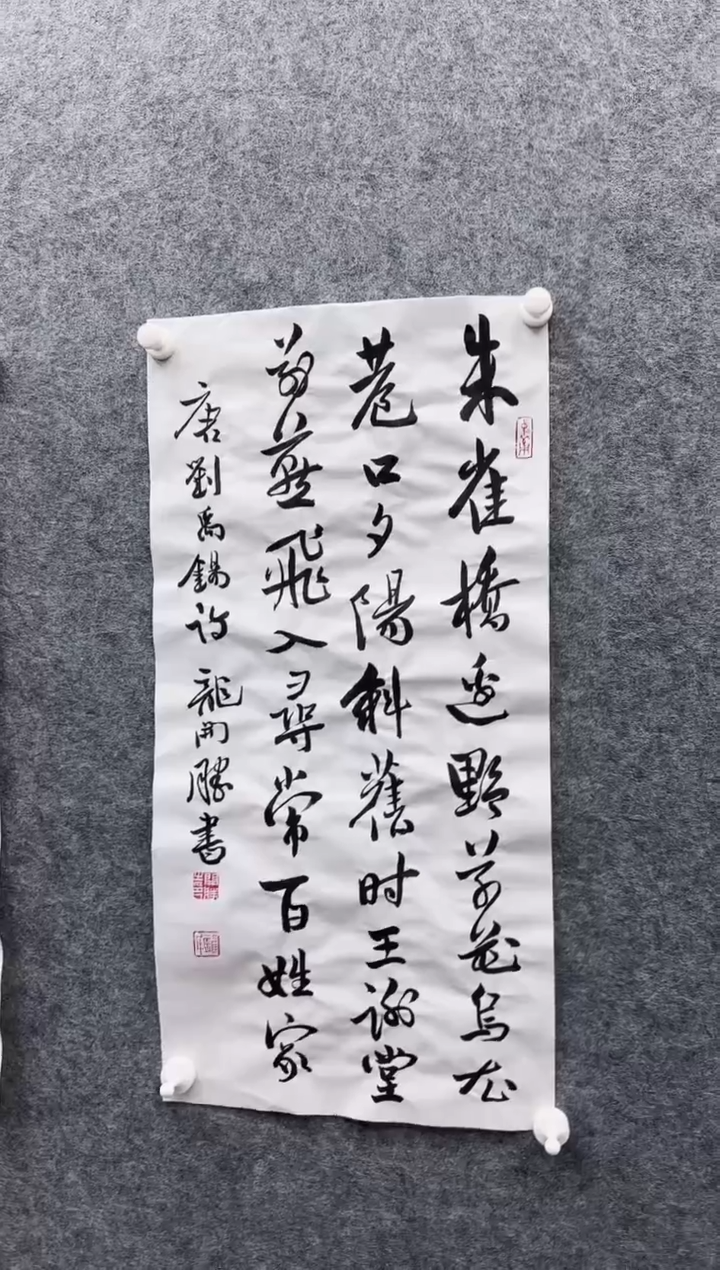 朱雀橋邊野草花烏衣
巷口夕陽斜舊时王謝堂
前燕飛入尋常百姓家
唐劉禹錫詩 龍開勝書